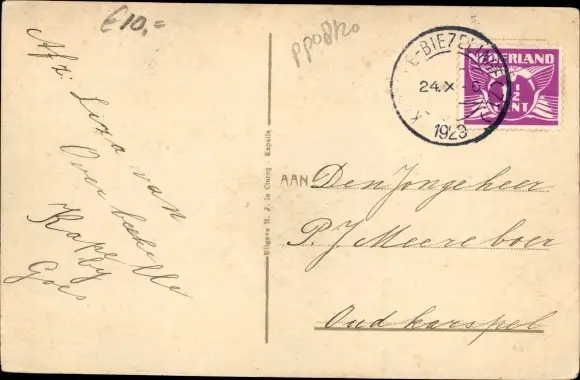 €10,=
ppo8ko
Afz. Liza van
Over
Kapelle
Goes.
Uitgave H. J. le Clercq - Kapelle
-BIEZELINGE
24.X
1929
NEDERLAND
1½
CENT
AAN Den Jongeheer
P. J. Meereboer
Oudkarspel